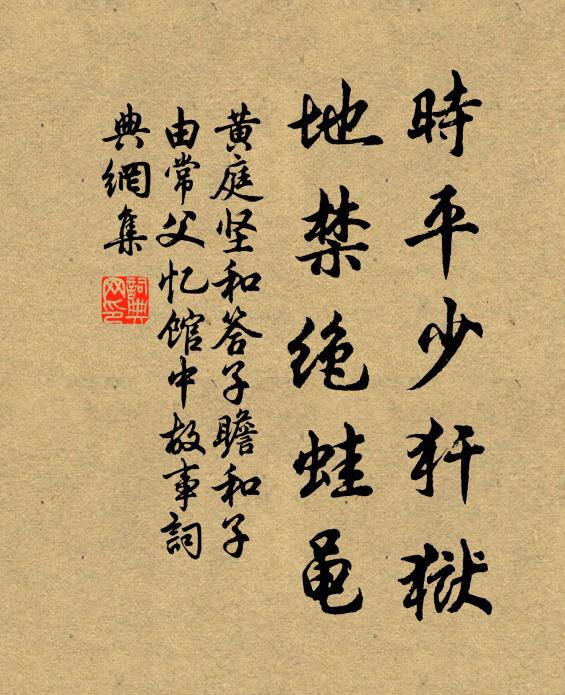 時平少犴獄
地禁绝蛙黾
黄庭坚和答子瞻和子
由常父忆館中故事詞
典網集
詞典
网印